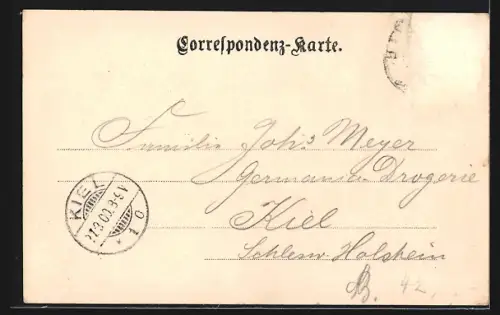 Correspondenz-Karte.
Familie Joh's Meyer
Germania Drogerie
Kiel
Schlesw Holstein
KIEL
* 1 0
B. 42